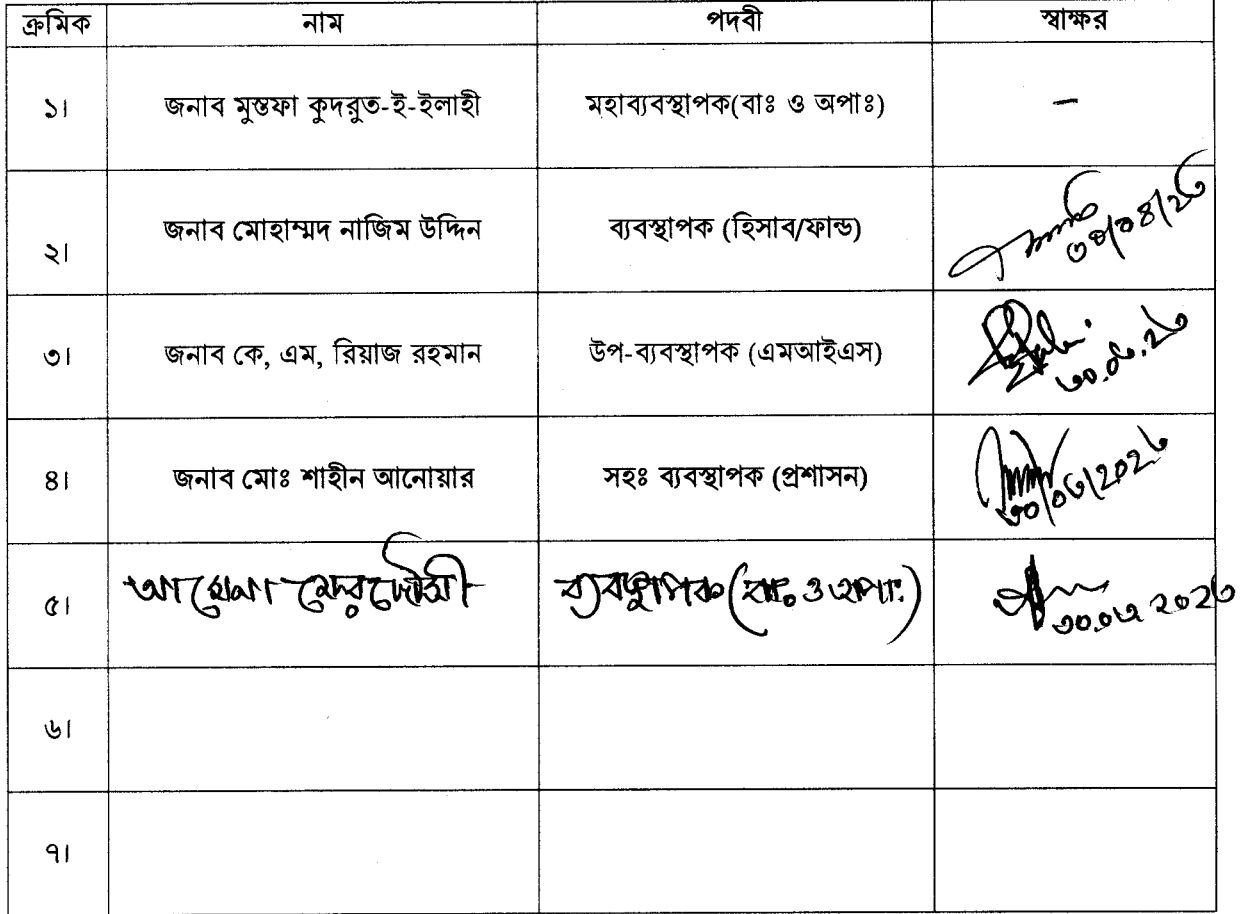 ক্রমিক নাম পদবী স্বাক্ষর
১। জনাব মুস্তফা কুদরুত-ই-ইলাহী মহাব্যবস্থাপক(বাঃ ও অপাঃ) –
২। জনাব মোহাম্মদ নাজিম উদ্দিন ব্যবস্থাপক (হিসাব/ফান্ড)
৩। জনাব কে, এম, রিয়াজ রহমান উপ-ব্যবস্থাপক (এমআইএস)
৪। জনাব মোঃ শাহীন আনোয়ার সহঃ ব্যবস্থাপক (প্রশাসন)
৫। ব্যবস্থাপক (বাঃ ও অপাঃ)
৬।
৭।